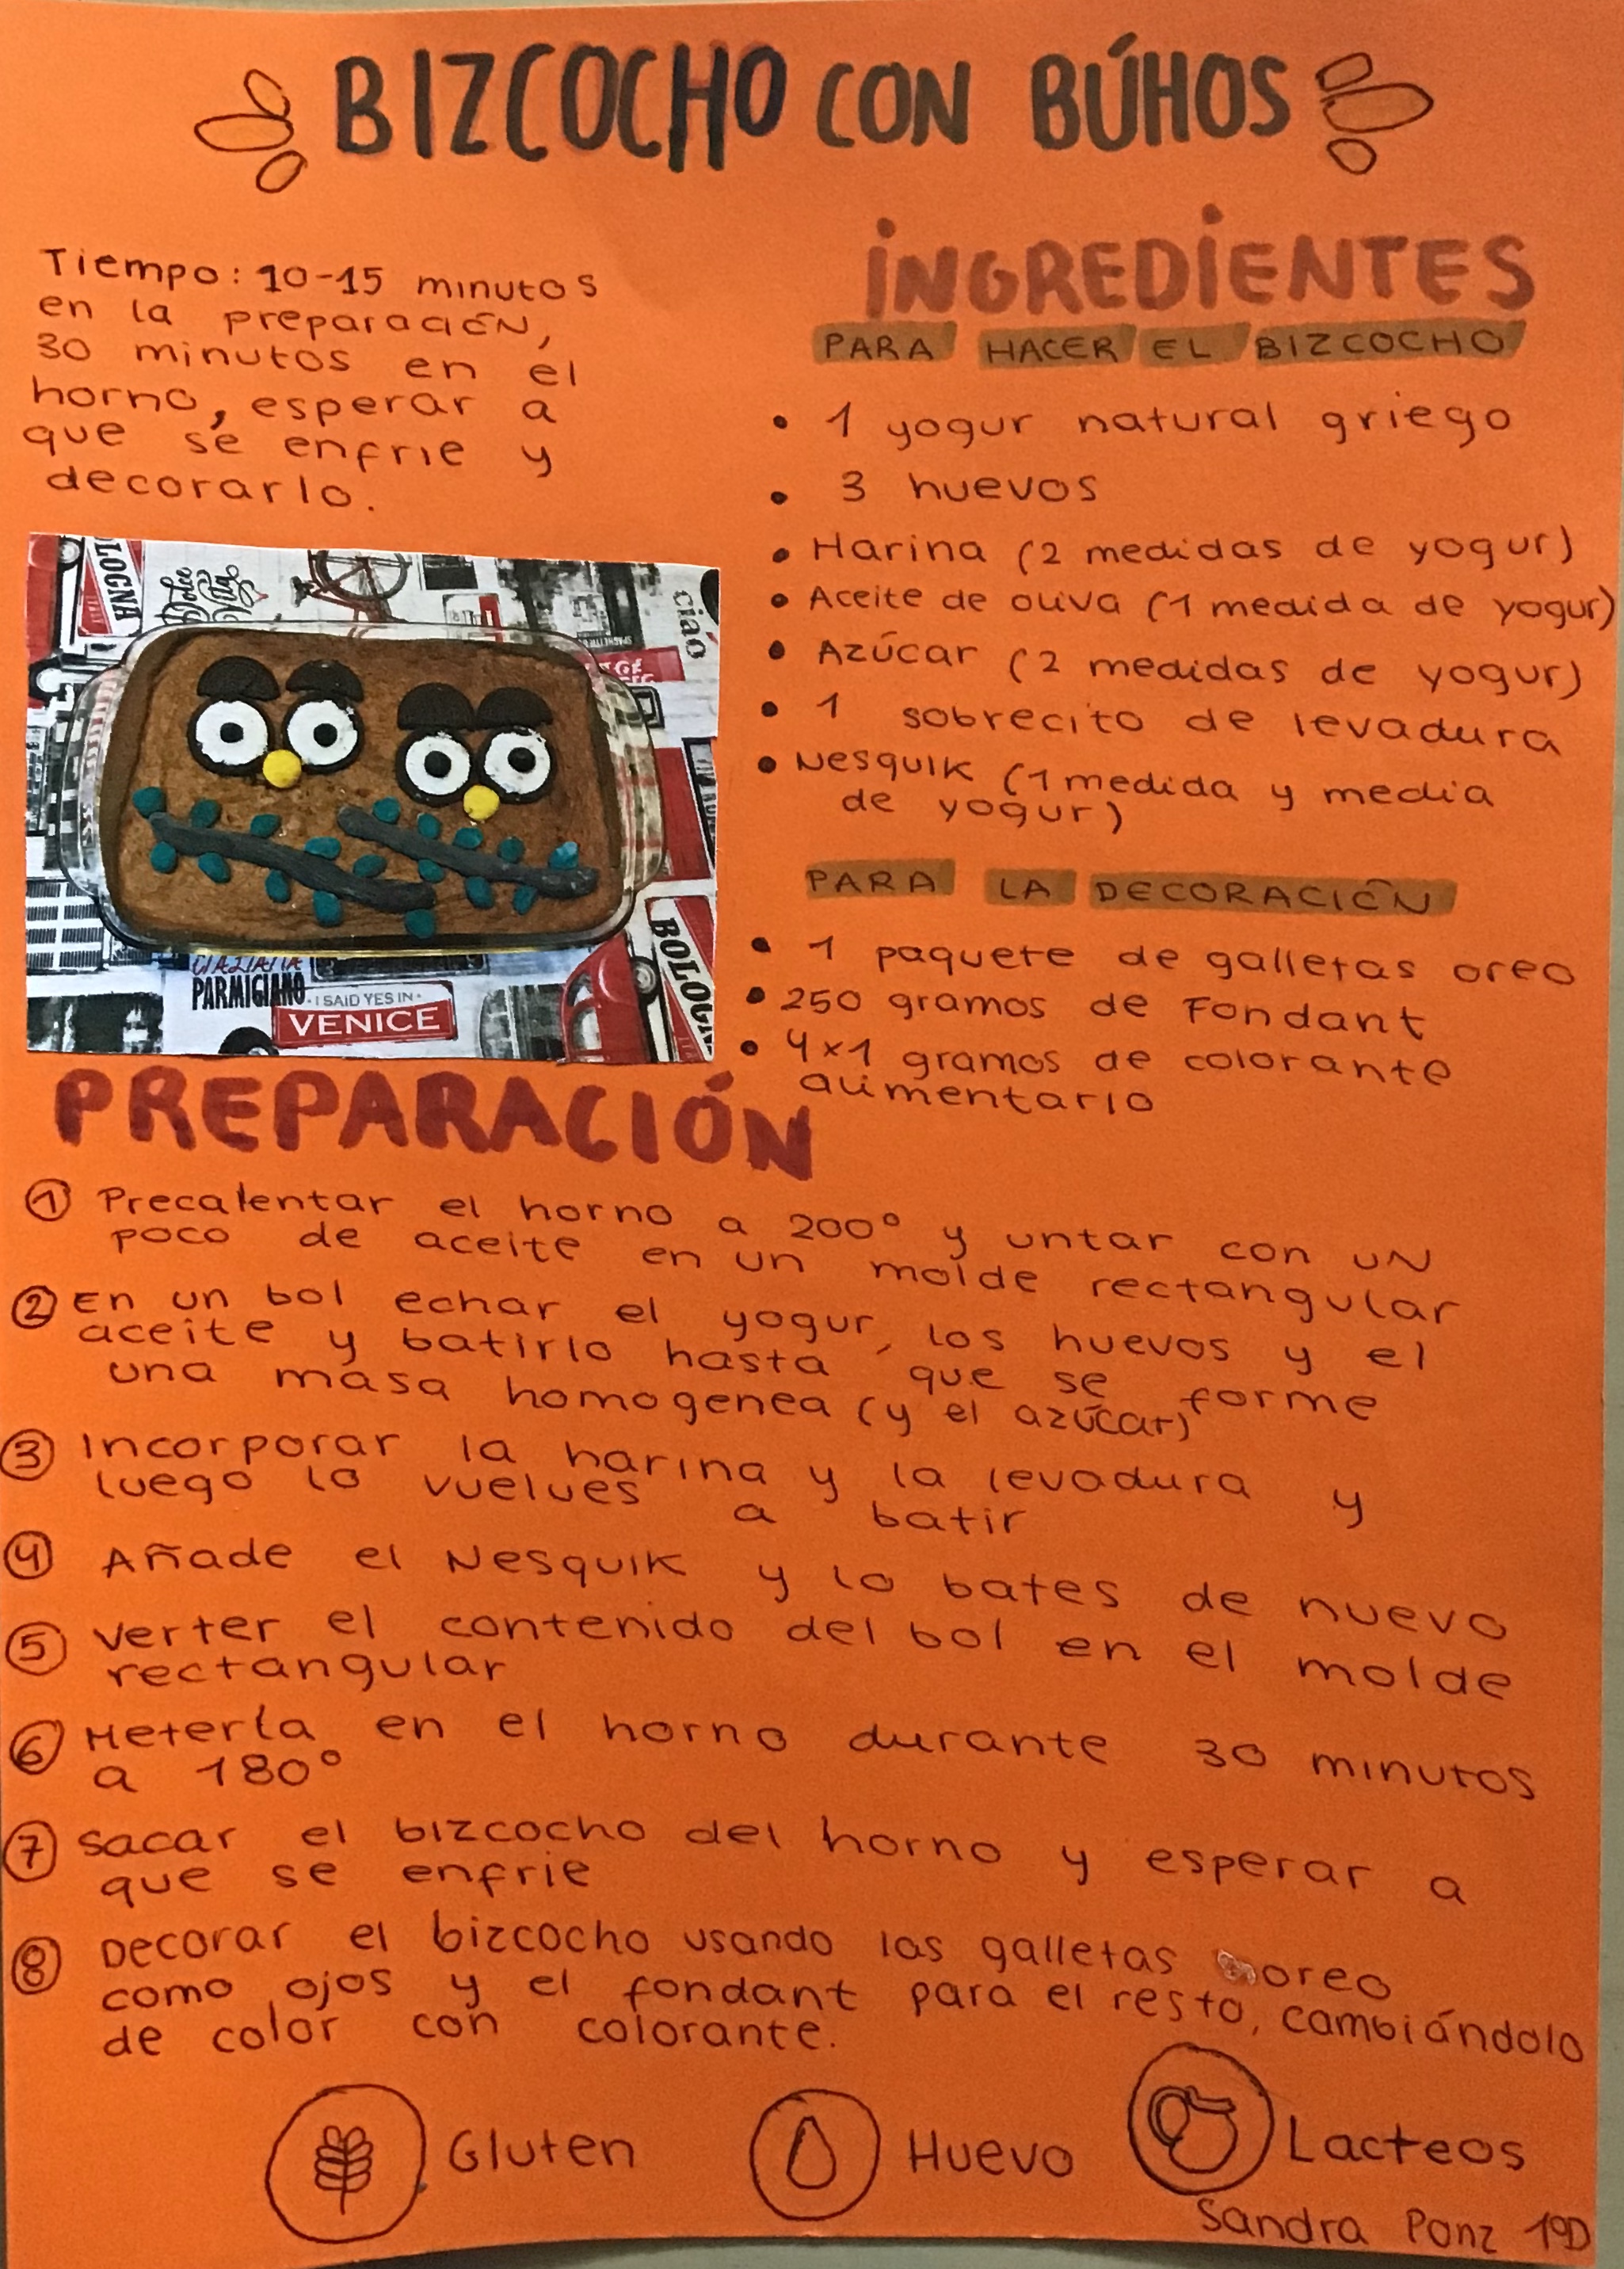 BIZCOCHO CON BÚHOS
Tiempo: 10-15 minutos
en la preparación,
30 minutos en el
horno, esperar a
que se enfrie y
decorarlo.
INGREDIENTES
PARA HACER EL BIZCOCHO
• 1 yogur natural griego
• 3 huevos
• Harina (2 medidas de yogur)
• Aceite de oliva (1 medida de yogur)
• Azúcar (2 medidas de yogur)
• 1 sobrecito de levadura
• Nesquik (1 medida y media
de yogur)
PARA LA DECORACIÓN
• 1 paquete de galletas oreo
• 250 gramos de Fondant
• 4x1 gramos de colorante
alimentario
LOGNA
Dolce
Vita
ciao
PARMIGIANO
I SAID YES IN
VENICE
BOLOGN
PREPARACIÓN
1 Precalentar el horno a 200° y untar con un
poco de aceite en un molde rectangular
2 En un bol echar el yogur, los huevos y el
aceite y batirlo hasta que se forme
una masa homogenea (y el azúcar)
3 Incorporar la harina y la levadura y
luego lo vuelves a batir
4 Añade el Nesquik y lo bates de nuevo
5 Verter el contenido del bol en el molde
rectangular
6 Meterla en el horno durante 30 minutos
a 180°
7 Sacar el bizcocho del horno y esperar a
que se enfrie
8 Decorar el bizcocho usando las galletas oreo
como ojos y el fondant para el resto, cambiándolo
de color con colorante.
Gluten
Huevo
Lacteos
Sandra Ponz 1ºD